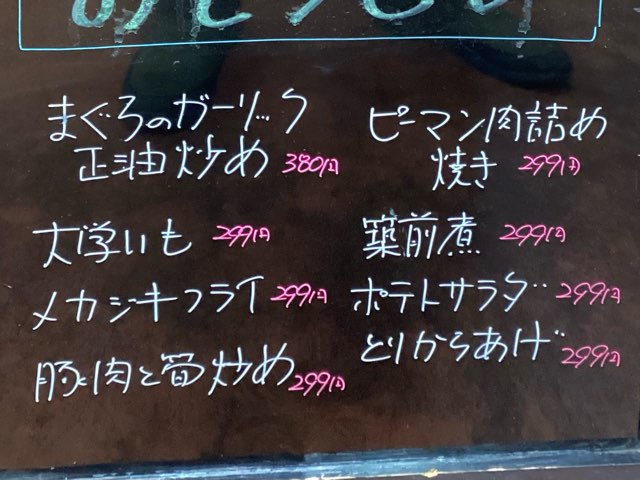 まぐろのガーリック
正油炒め 380円
大学いも 299円
メカジキフライ 299円
豚肉と筍炒め 299円
ピーマン肉詰め
焼き 299円
築前煮 299円
ポテトサラダ 299円
とりからあげ 299円